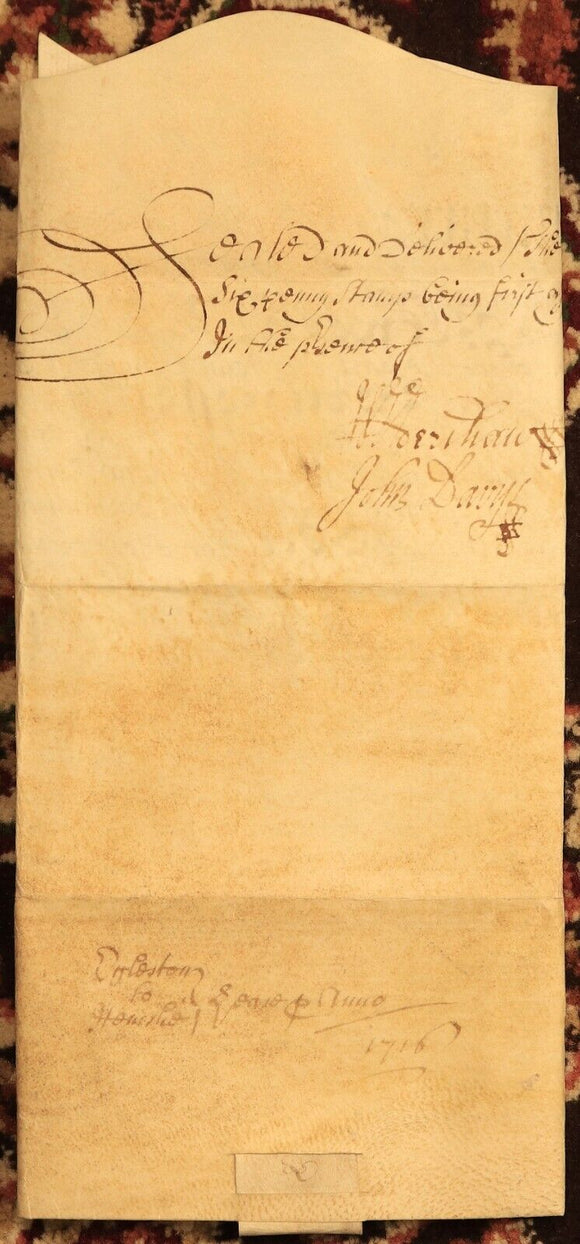 Sealed and Delivered / the
Six penny Stamp being first
In the p̱sence of
John Davys
Egleston
to
Lease p Anno
1716